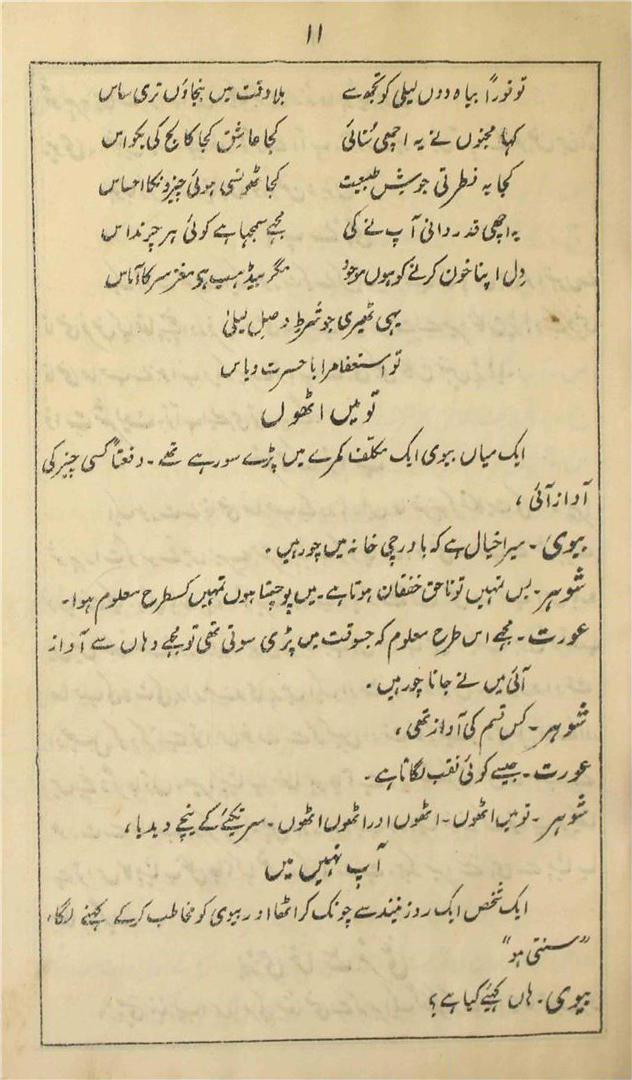 ۱۱
تو فوراً بیاہ دوں لیلیٰ کو تجھ سے بلا دقت میں بنجاؤں تری ساس
کہا مجنوں نے یہ اچھی سُنائی کجا عاشق کجا کالج کی بکواس
کجا یہ فطرتی جوشِ طبیعت کجا ٹھونسی ہوئی چیزونکا احساس
یہ اچھی قدر دانی آپ نے کی مجھے سمجھا ہے کوئی ہرچرنداس
دِل اپنا خون کرنے کو ہوں موجود مگر مغز سر کا آماس
یہی ٹھیری جو شرطِ وصلِ لیلیٰ
تو استعفا مرا با حسرت و یاس
تو میں اٹھوں
ایک میاں بیوی ایک مکلف کمرے میں پڑے سو رہے تھے ۔ دفعتاً کسی چیز کی
آواز آئی ،
بیوی ۔ میرا خیال ہے کہ باورچی خانہ میں چور ہیں ۔
شوہر ۔ بس نہیں تو ناحق خفقان ہوتا ہے ۔ میں پوچھتا ہوں تمہیں کسطرح معلوم ہوا ۔
عورت ۔ مجھے اس طرح معلوم کہ جسوقت میں پڑی سوتی تھی تو مجھے وہاں سے آواز
آئی میں نے جانا چور ہیں ۔
شوہر ۔ کس قسم کی آواز تھی ،
عورت ۔ جیسے کوئی نقب لگاتا ہے ۔
شوہر ۔ تو میں اٹھوں ۔ اٹھوں اور اٹھوں اٹھوں ۔ سر تکیئے کے نیچے دیدیا ،
آپ نہیں میں
ایک شخص ایک روز نیند سے چونک کر اٹھا اور بیوی کو مخاطب کر کے کہنے لگا ،
"سنتی ہو"
بیوی ۔ ہاں کہئے کیا ہے ؟